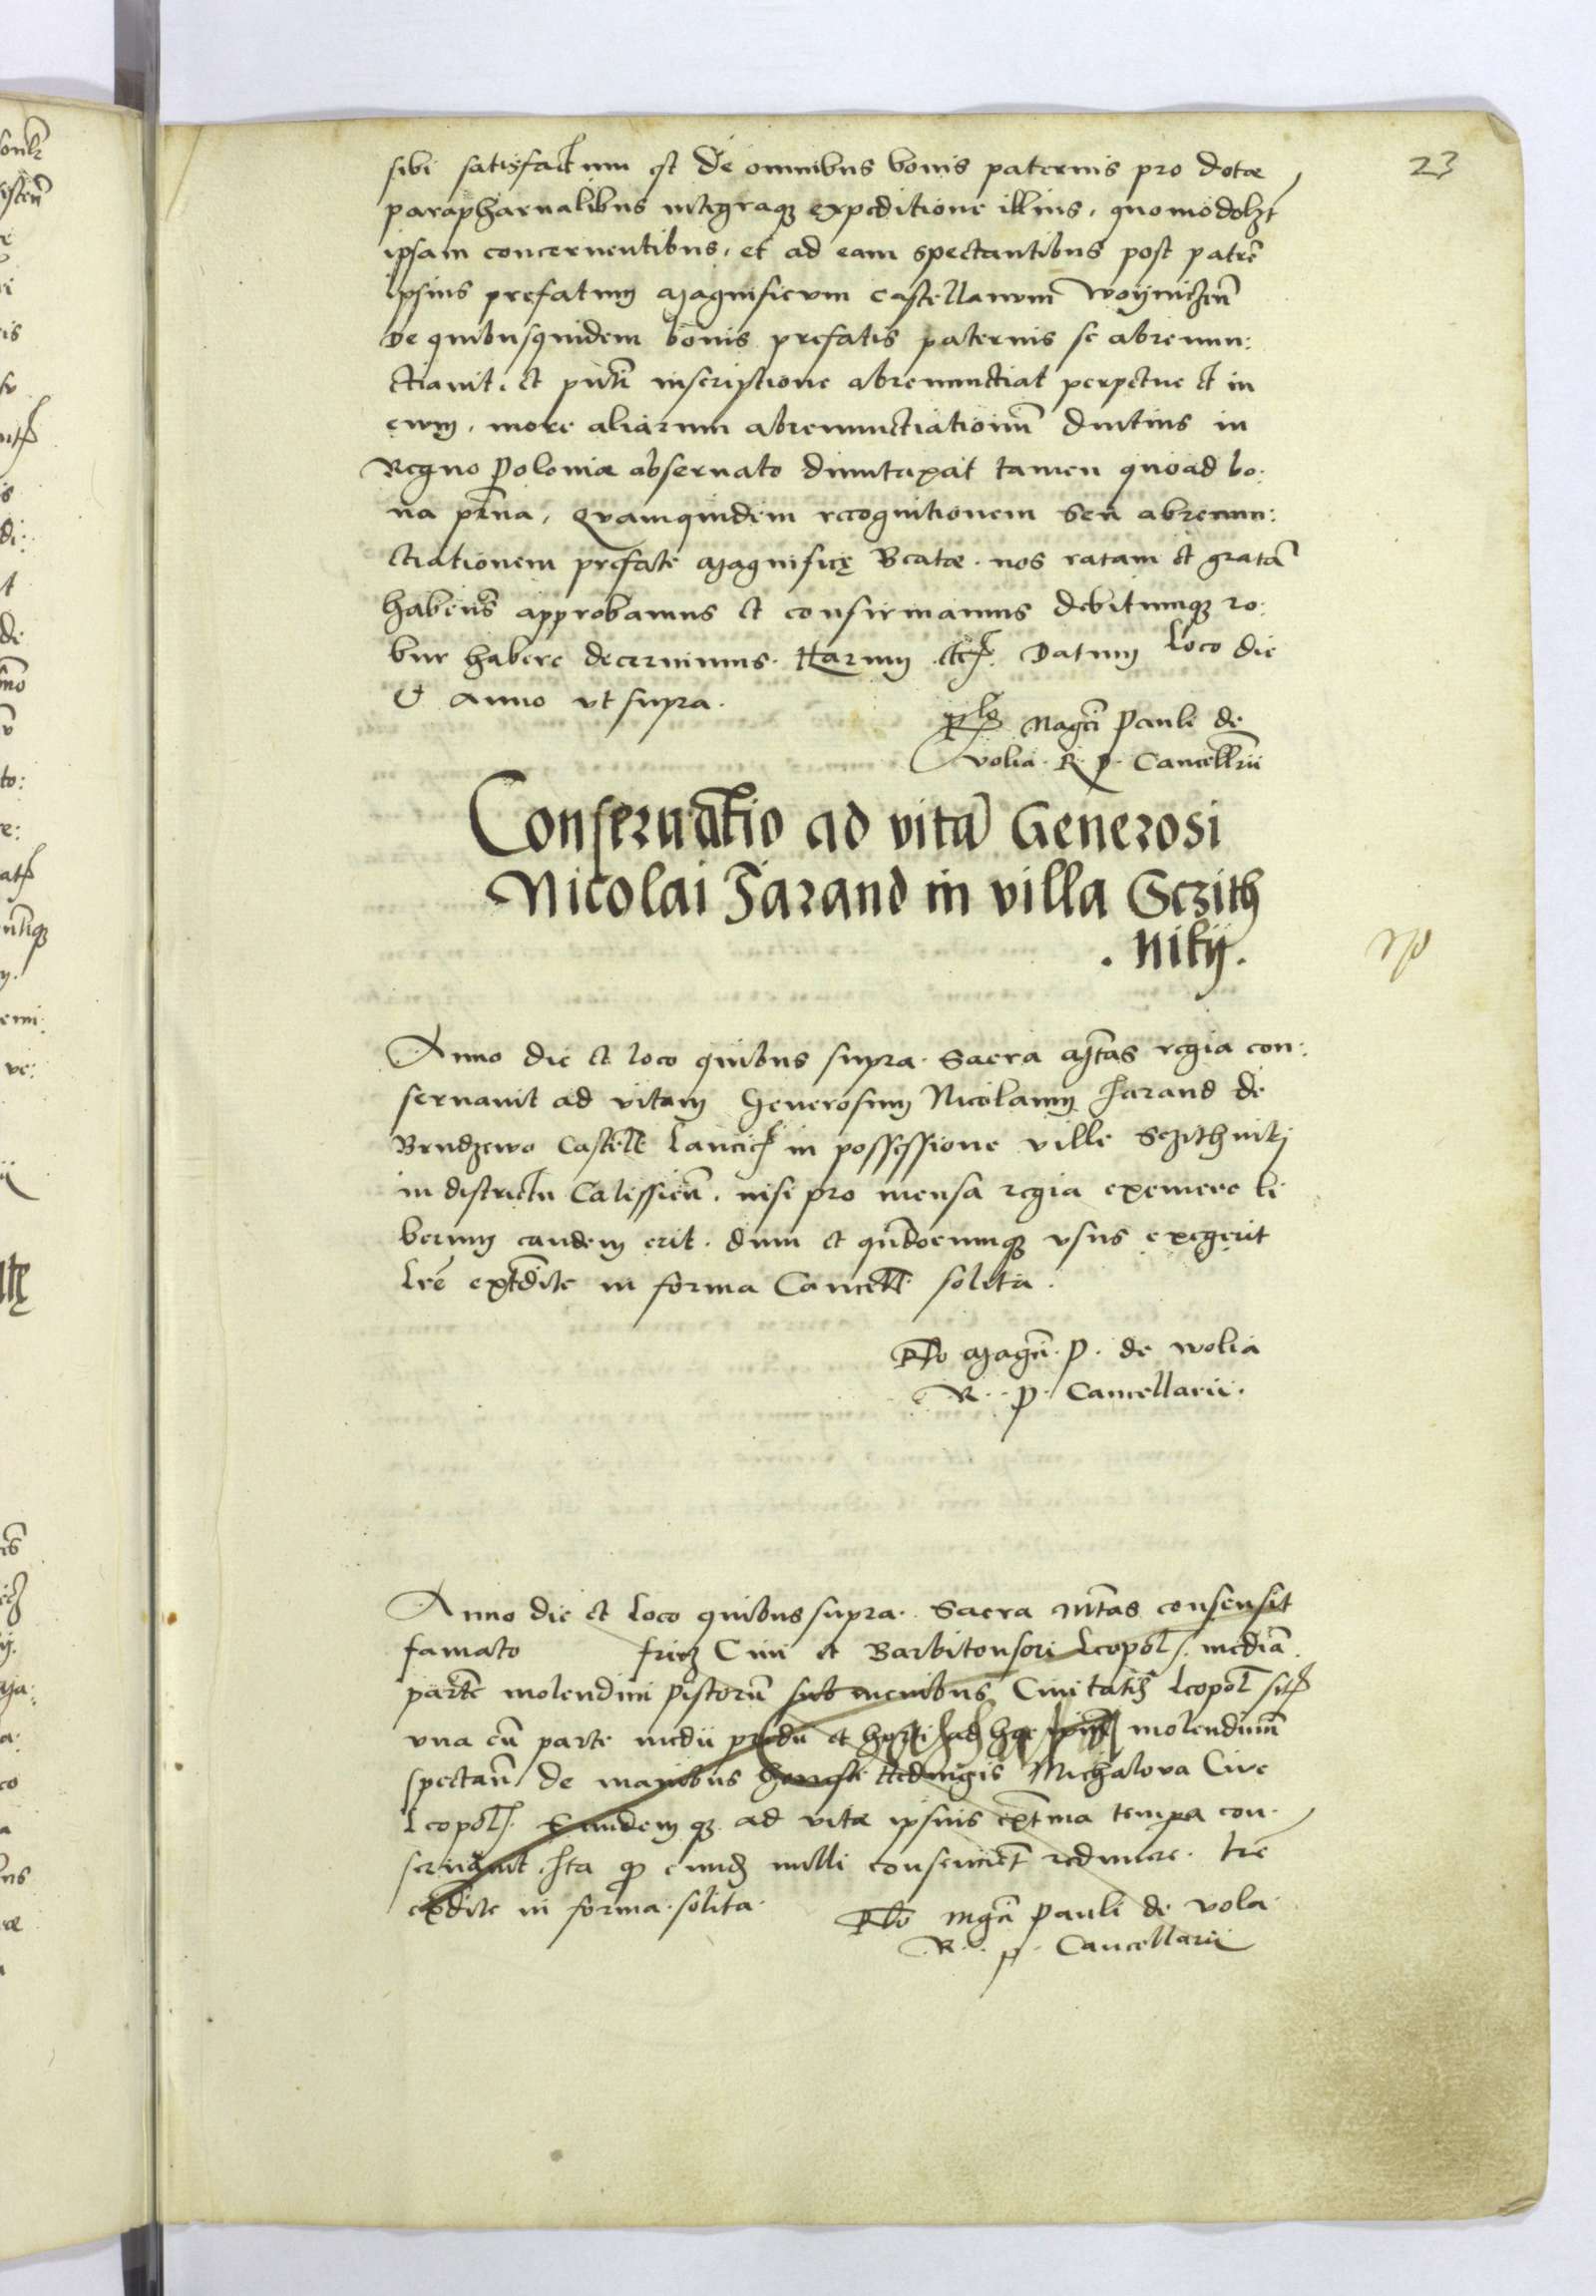 23
sibi satisfactum est de omnibus bonis paternis pro dotæ
parapharnalibus integraqꝫ expeditione illius, quomodolꝫt
ipsam concernentibus, et ad eam spectantibus post patrē
ipsius prefatum Magnificum castellanum Woynicȝeñ
De quibusquidem bonis prefatis paternis se abrenun:
ctiavit, et pñti inscriptione abrenunctiat perpetue et in
evum, more aliarum abrenunctiationum diutius in
Regno Poloniæ observato dumtaxat tamen quoad bo:
na pr̃na, Quamquidem recognitionem seu abrenun:
ctiationem prefate Magnificę Beatæ. nos ratam et gratā
habeñs approbamus et confirmamus debitumqꝫ ro:
bur habere decernimus. Harum etc. Datum loco die
Et anno ut supra.
Rlo Magci Pauli de
Volia. R. P. Cancellrii
Conservatio ad vitā Generosi
Nicolai Jarand in villa Sczith
. Niky.
Anno die et loco quibus supra. Sacra Mtas regia con:
servavit ad vitam Generosum Nicolaum Jarand de
Brudzewo Castell Lancic̄ in possessione ville Sczithniky
in districtu Calissieñ. nisi pro mensa regia exemere li
berum eandem erit. dum et qñdocumqꝫ usus exegerit
Lrē extdite in forma Cancell solita.
Rlo Magci. P. de Wolia
R. P. Cancellarii.
Anno die et loco quibus supra. Sacra Mtas consensit
famato fricz Civi et Barbitonsori Leopol. mediā
partē molendini Pistorū sub menibus Civitatis Leopol sit
una cū parte medii predii et horti ad hoc molendinū
spectañ de manibus honeste Hedvigis Michalova Cive
Leopol. Eundemqꝫ ad vitæ ipsius extma tempa con.
servavit Ita qꝫ eundꝫ nulli consenciet redimere. Lre
exdite in forma solita.
Rlo Mgci Pauli de Vola
R. P. Cancellarii